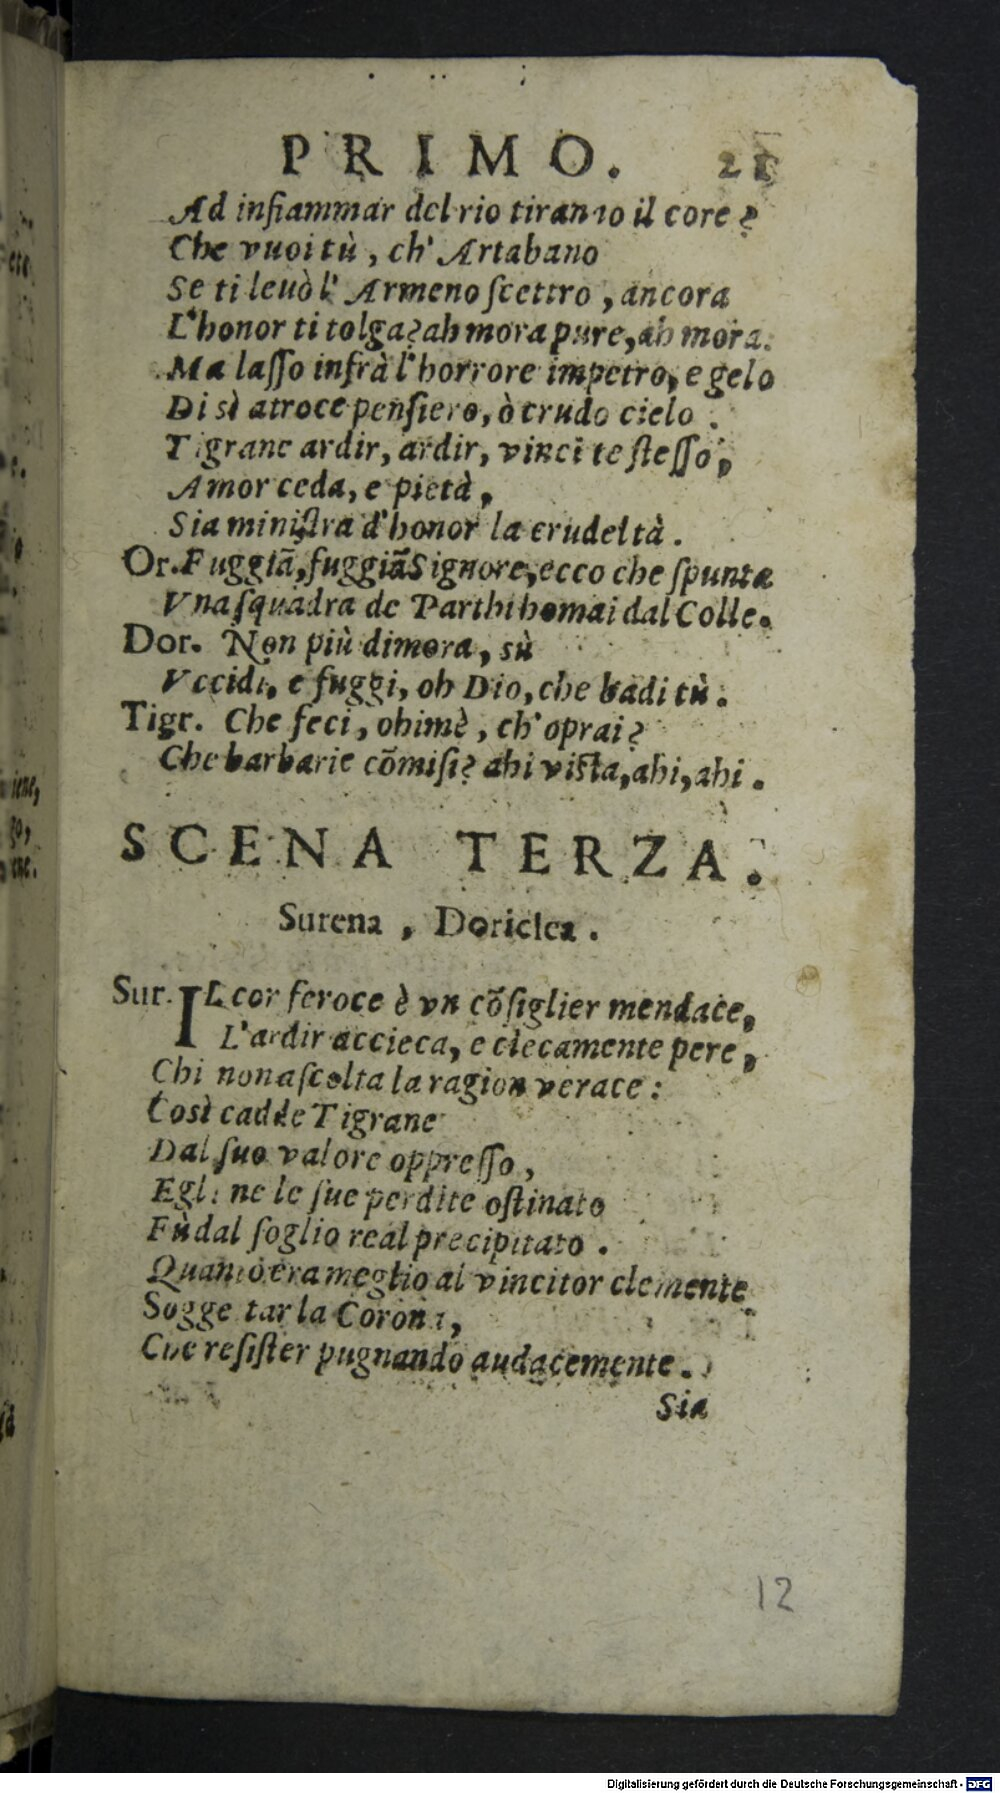 PRIMO. 21
Ad infiammar del rio tiranno il core?
Che vuoi tù, ch' Artabano
Se ti leuò l' Armeno ſcettro, ancora
L'honor ti tolga? ah mora pure, ah mora.
Ma laſſo infrà l'horrore impetro, e gelo
Di sì atroce penſiero, ò crudo cielo.
Tigrane ardir, ardir, vinci te ſteſſo,
Amor ceda, e pietà,
Sia miniſtra d'honor la crudeltà.
Or. Fuggiã, fuggiã Signore, ecco che ſpunta
Vna ſquadra de Parthi homai dal Colle.
Dor. Non più dimora, sù
Vccidi, e fuggi, oh Dio, che badi tù.
Tigr. Che feci, ohimè, ch' oprai?
Che barbarie cõmiſi? ahi viſta, ahi, ahi.
SCENA TERZA.
Surena, Doriclea.
Sur. IL cor feroce è vn cõſiglier mendace,
L'ardir accieca, e ciecamente pere,
Chi non aſcolta la ragion verace:
Così cadde Tigrane
Dal ſuo valore oppreſſo,
Egli ne le ſue perdite oſtinato
Fù dal ſoglio real precipitato.
Quanto era meglio al vincitor clemente
Sogge tar la Corona,
Che reſiſter pugnando audacemente.
Sia
12
Digitalisierung gefördert durch die Deutsche Forschungsgemeinschaft - DFG